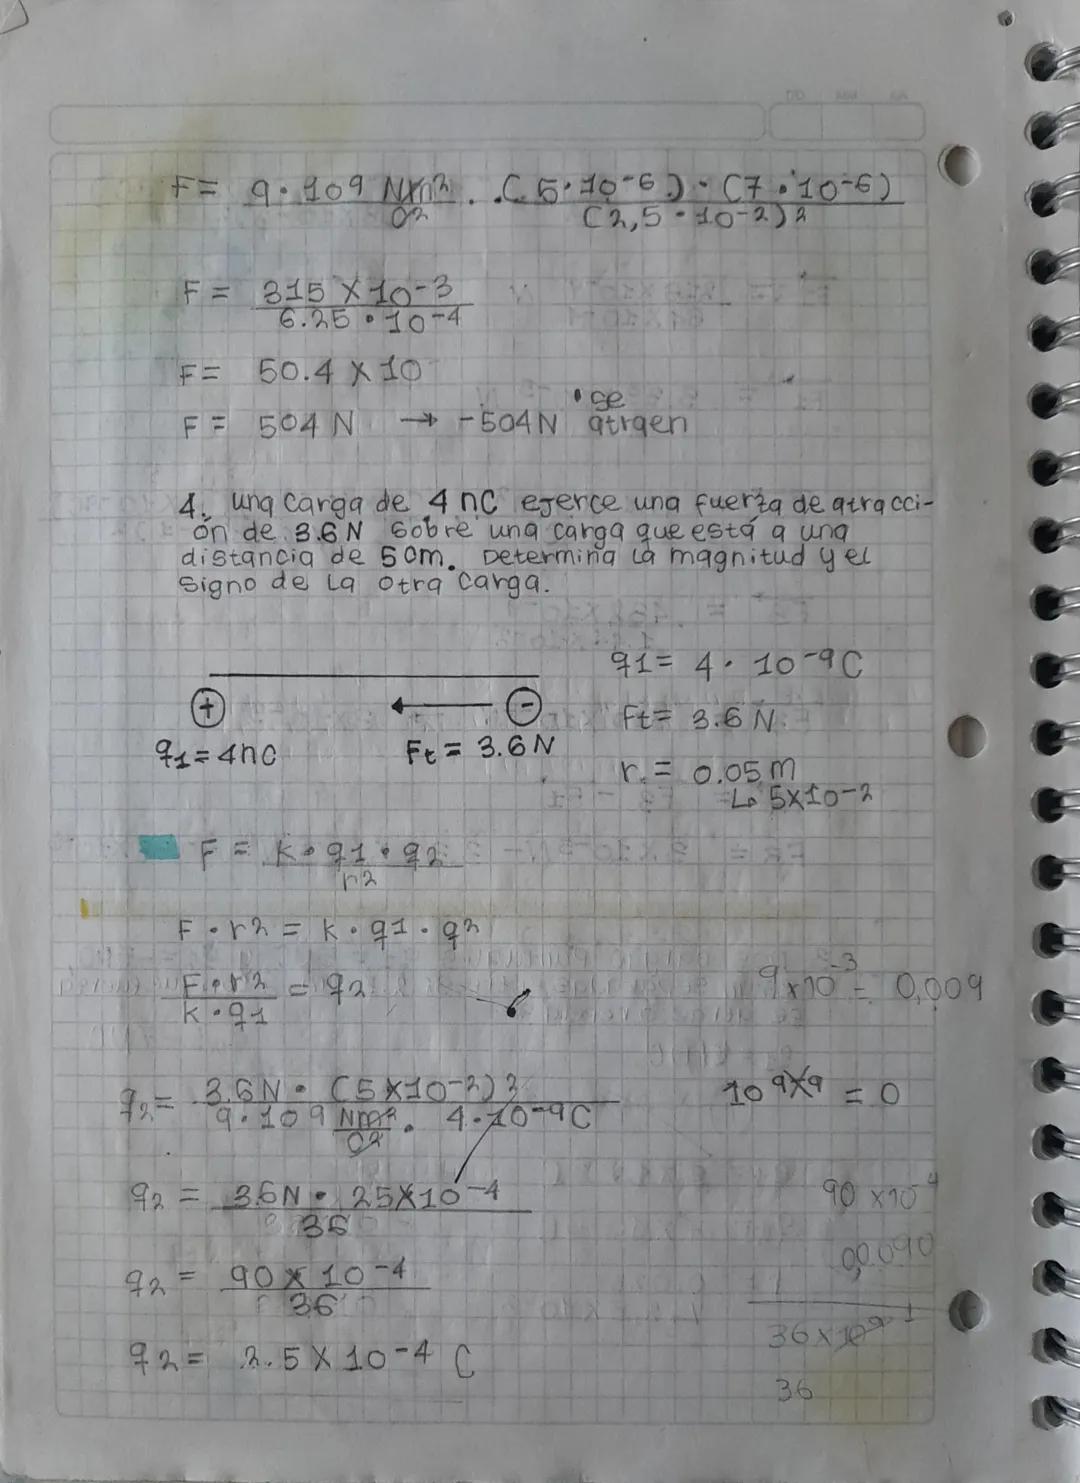 F= 9·109 Nxm2/C2 · (5·10-6)·(7·10-6)
(2,5·10-2)2
F= 315×10-3
6.25·10-4
F= 50.4×10
F= 504N → -504N • se atraen
4. una carga de 4nC ejerce una fuerza de atracci-
ón de 3.6N sobre una carga que está a una
distancia de 5cm. Determina la magnitud y el
signo de la otra carga.
q1= 4·10-9C
+ -
Ft= 3.6N
q1=4nC Ft=3.6N
r= 0.05m
↳ 5×10-2
F= k·q1·q2
r2
F·r2= k·q1·q2
F·r2 = q2
k·q1
9×10-3 = 0,009
q2= 3.6N·(5×10-2)2
9·109 Nm2/C2 · 4·10-9C
10 9×9 = 0
q2= 3.6N·25×10-4
36
90×10-4
00.090
q2= 90×10-4
36
36×10
q2= 2.5×10-4 C
36